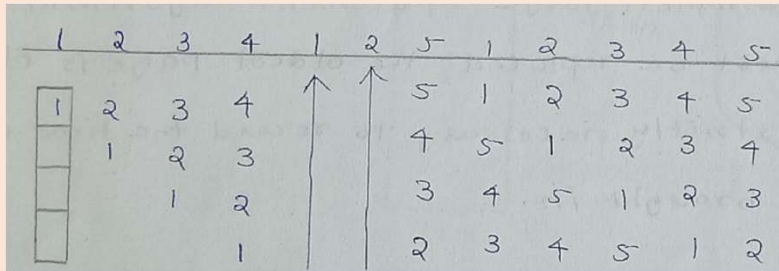 1 2 3 4 1 2 5 1 2 3 4 5
1 2 3 4 5 1 2 3 4 5
1 2 3 4 5 1 2 3 4
1 2 3 4 5 1 2 3
1 2 3 4 5 1 2